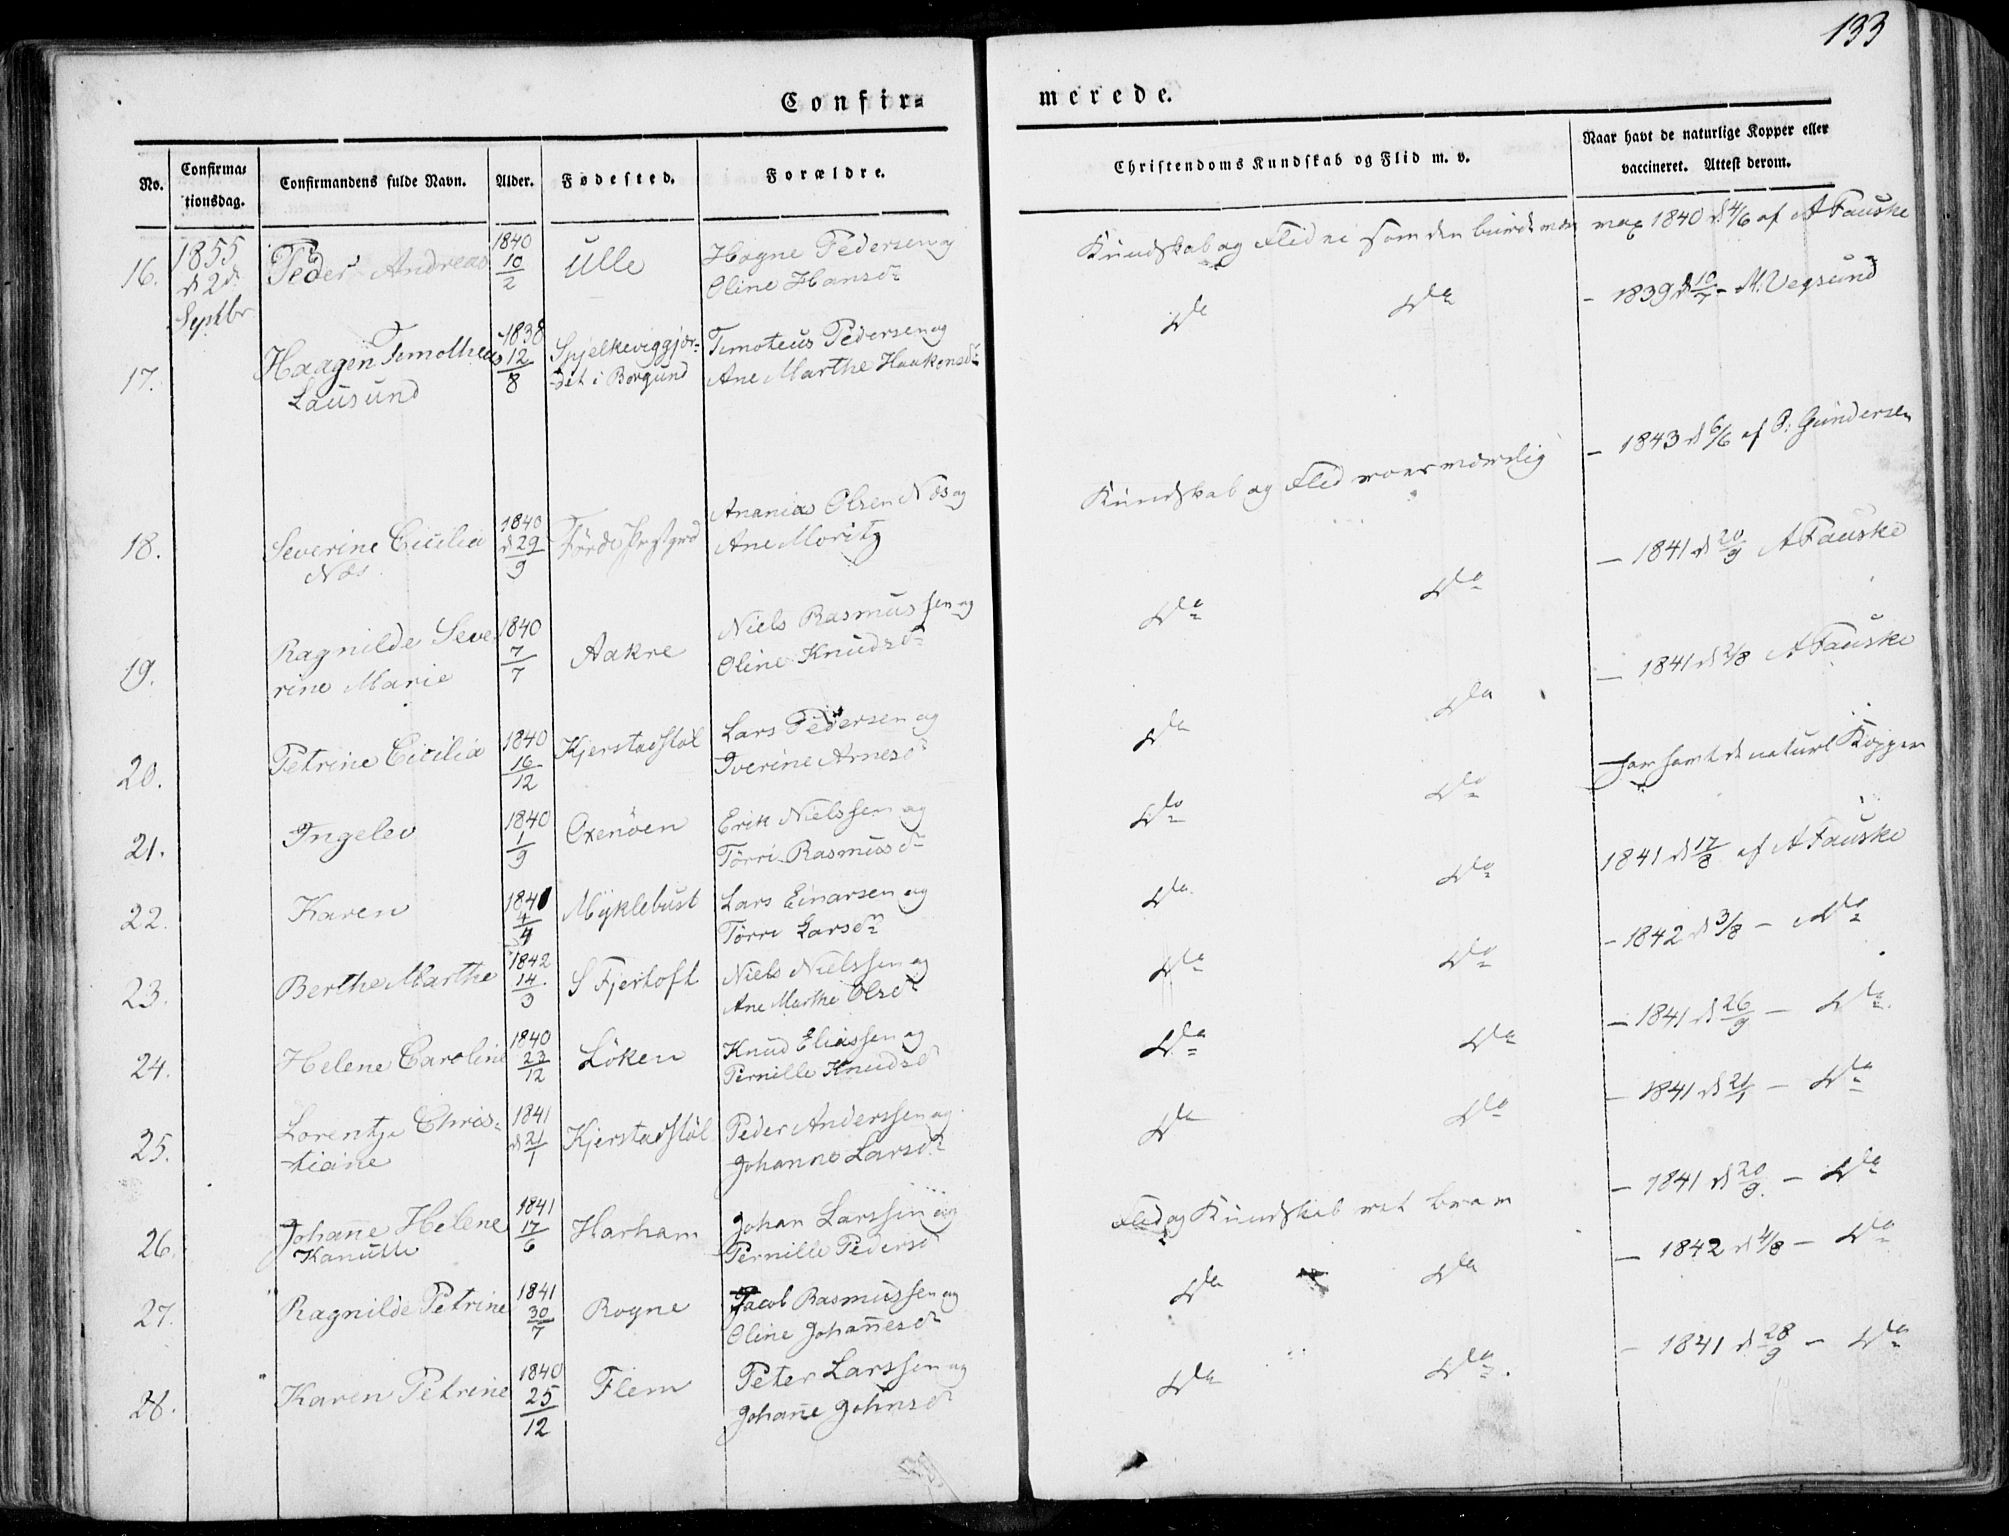 133
Confir=
merede.
No.
Confirma=
tionsdag.
Confirmandens fulde Navn.
Alder.
Fødested.
Forældre.
Christendoms Kundskab og Flid m. v.
Naar havt de naturlige Kopper eller
vaccineret. Attest derom.
16.
1855
d 2d.
Septbr
Peder Andreas
1840
10/2
Ulle
Hagne Pedersen og
Oline Hansd
Kundskab og Flid ei som den burde
1840 d 4/6 af A Fauske
17.
Haagen Timotheus
Lausund
1838
12/8
Spjelkeviggjær-
det i Borgund
Timoteus Pedersen og
Ane Marthe Haakensd
Do Do
- 1839 d 10/7 - M. Vegsund
18.
Severine Cicilia
Næs
1840
d 29/9
Førde Præstgrd
Ananias Olsen Næs og
Ane Moritz
Kundskab og Flid
- 1843 d 6/6 af P. Gundersen
19.
Ragnilde Seve-
rine Marie
1840
7/7
Aakre
Niels Rasmussen og
Oline Knudsd
Do Do
- 1841 d 20/9 A Fauske
20.
Petrine Cicilia
1840
16/12
Kjerstadstøl
Lars Pedersen og
Iverine Arnesd
Do Do
- 1841 d 2/8 A Fauske
21.
Ingelev
1840
1/9
Oxenøen
Erik Nielssen og
Tørri Rasmusd
Do Do
har havt de naturl Kopper
22.
Karen
1841
4/4
Myklebust
Lars Einarsen og
Tørri Larsd
Do Do
1841 d 17/8 af A Fauske
23.
Berthe Marthe
1842
14/3
S Fjertoft
Niels Nielssen og
Ane Marthe Olsd
Do Do
- 1842 d 3/8 - Do
24.
Helene Caroline
1840
23/12
Løken
Knud Eliassen og
Pernille Knudsd
Do Do
- 1841 d 26/9 - Do
25.
Lorentze Chris-
tiane
1841
d 21/1
Kjerstadstøl
Peder Anderssen og
Johanne Larsd
Do Do
- 1841 d 21/1 - Do
26.
Johane Helene
Kanutte
1841
17/6
Harham
Johan Larssen og
Pernille Pedersd
Flid og Kundskab ret brav
- 1841 d 20/9 - Do
27.
Ragnilde Petrine
1841
30/7
Rogne
Jacob Rasmussen og
Oline Johanesd
Do Do
- 1842 d 4/8 - Do
28.
Karen Petrine
1840
25/12
Flem
Peter Larssen og
Johane Johnsd
Do Do
- 1841 d 28/9 - Do